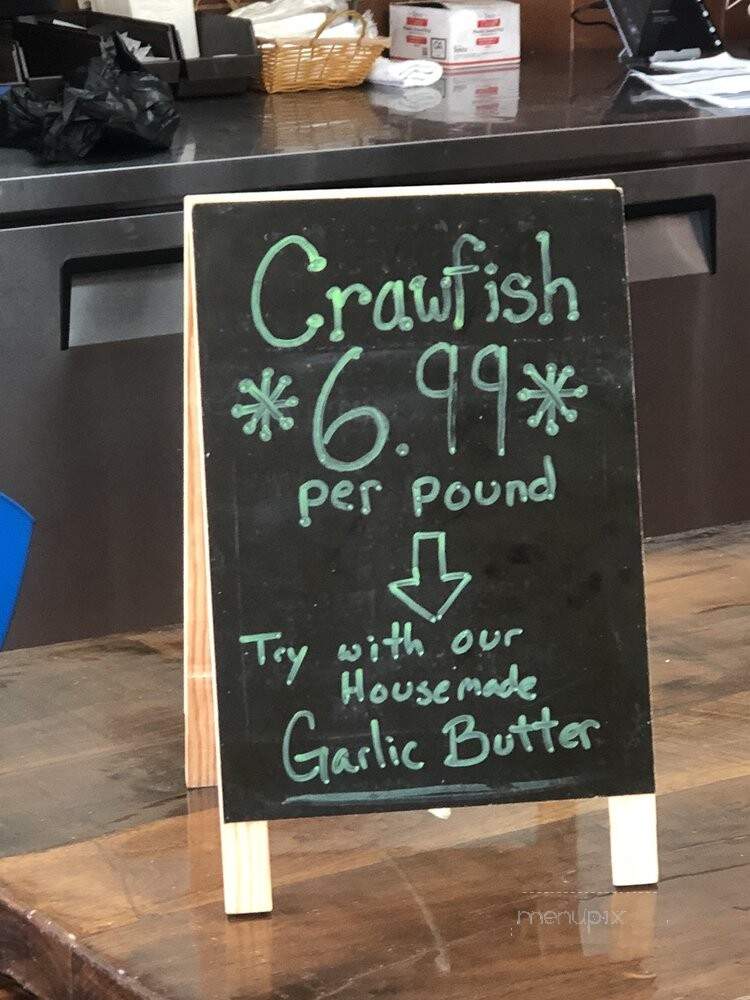 Crawfish
*6.99*
per pound
Try with our
Housemade
Garlic Butter
menupix